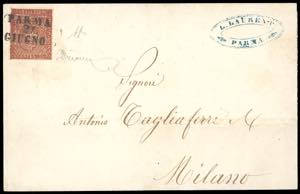 PARMA
GIUGNO
PARMA
Signori
Antonio Tagliaferri &
Milano